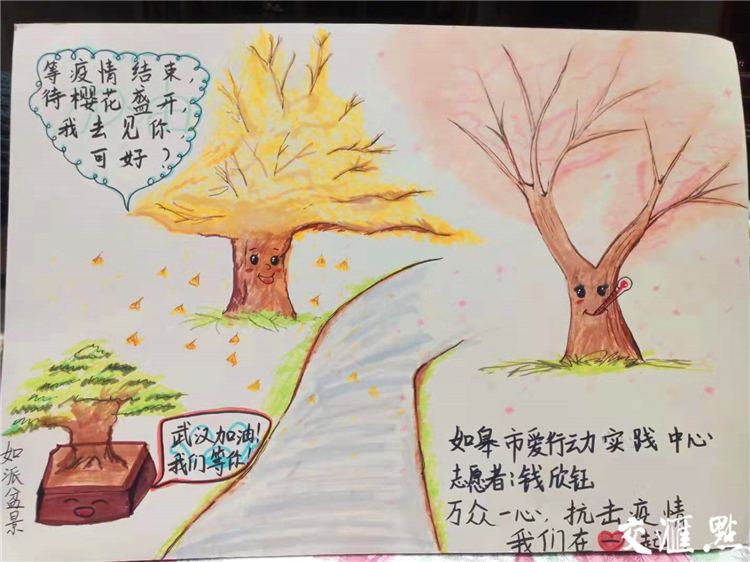 等疫情结束，
待樱花盛开，
我去见你，
可好？
武汉加油！
我们等你！
如派盆景
如皋市爱行动实践中心
志愿者：钱欣钰
万众一心，抗击疫情
我们在一起
交汇点